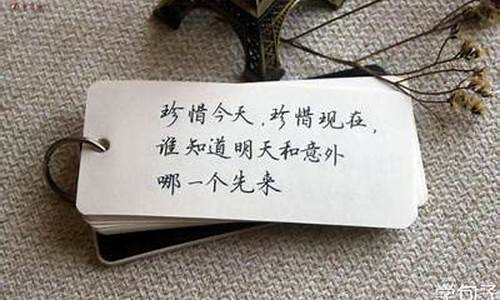 珍惜今天,珍惜现在,
谁知道明天和意外
哪一个先来
学句子